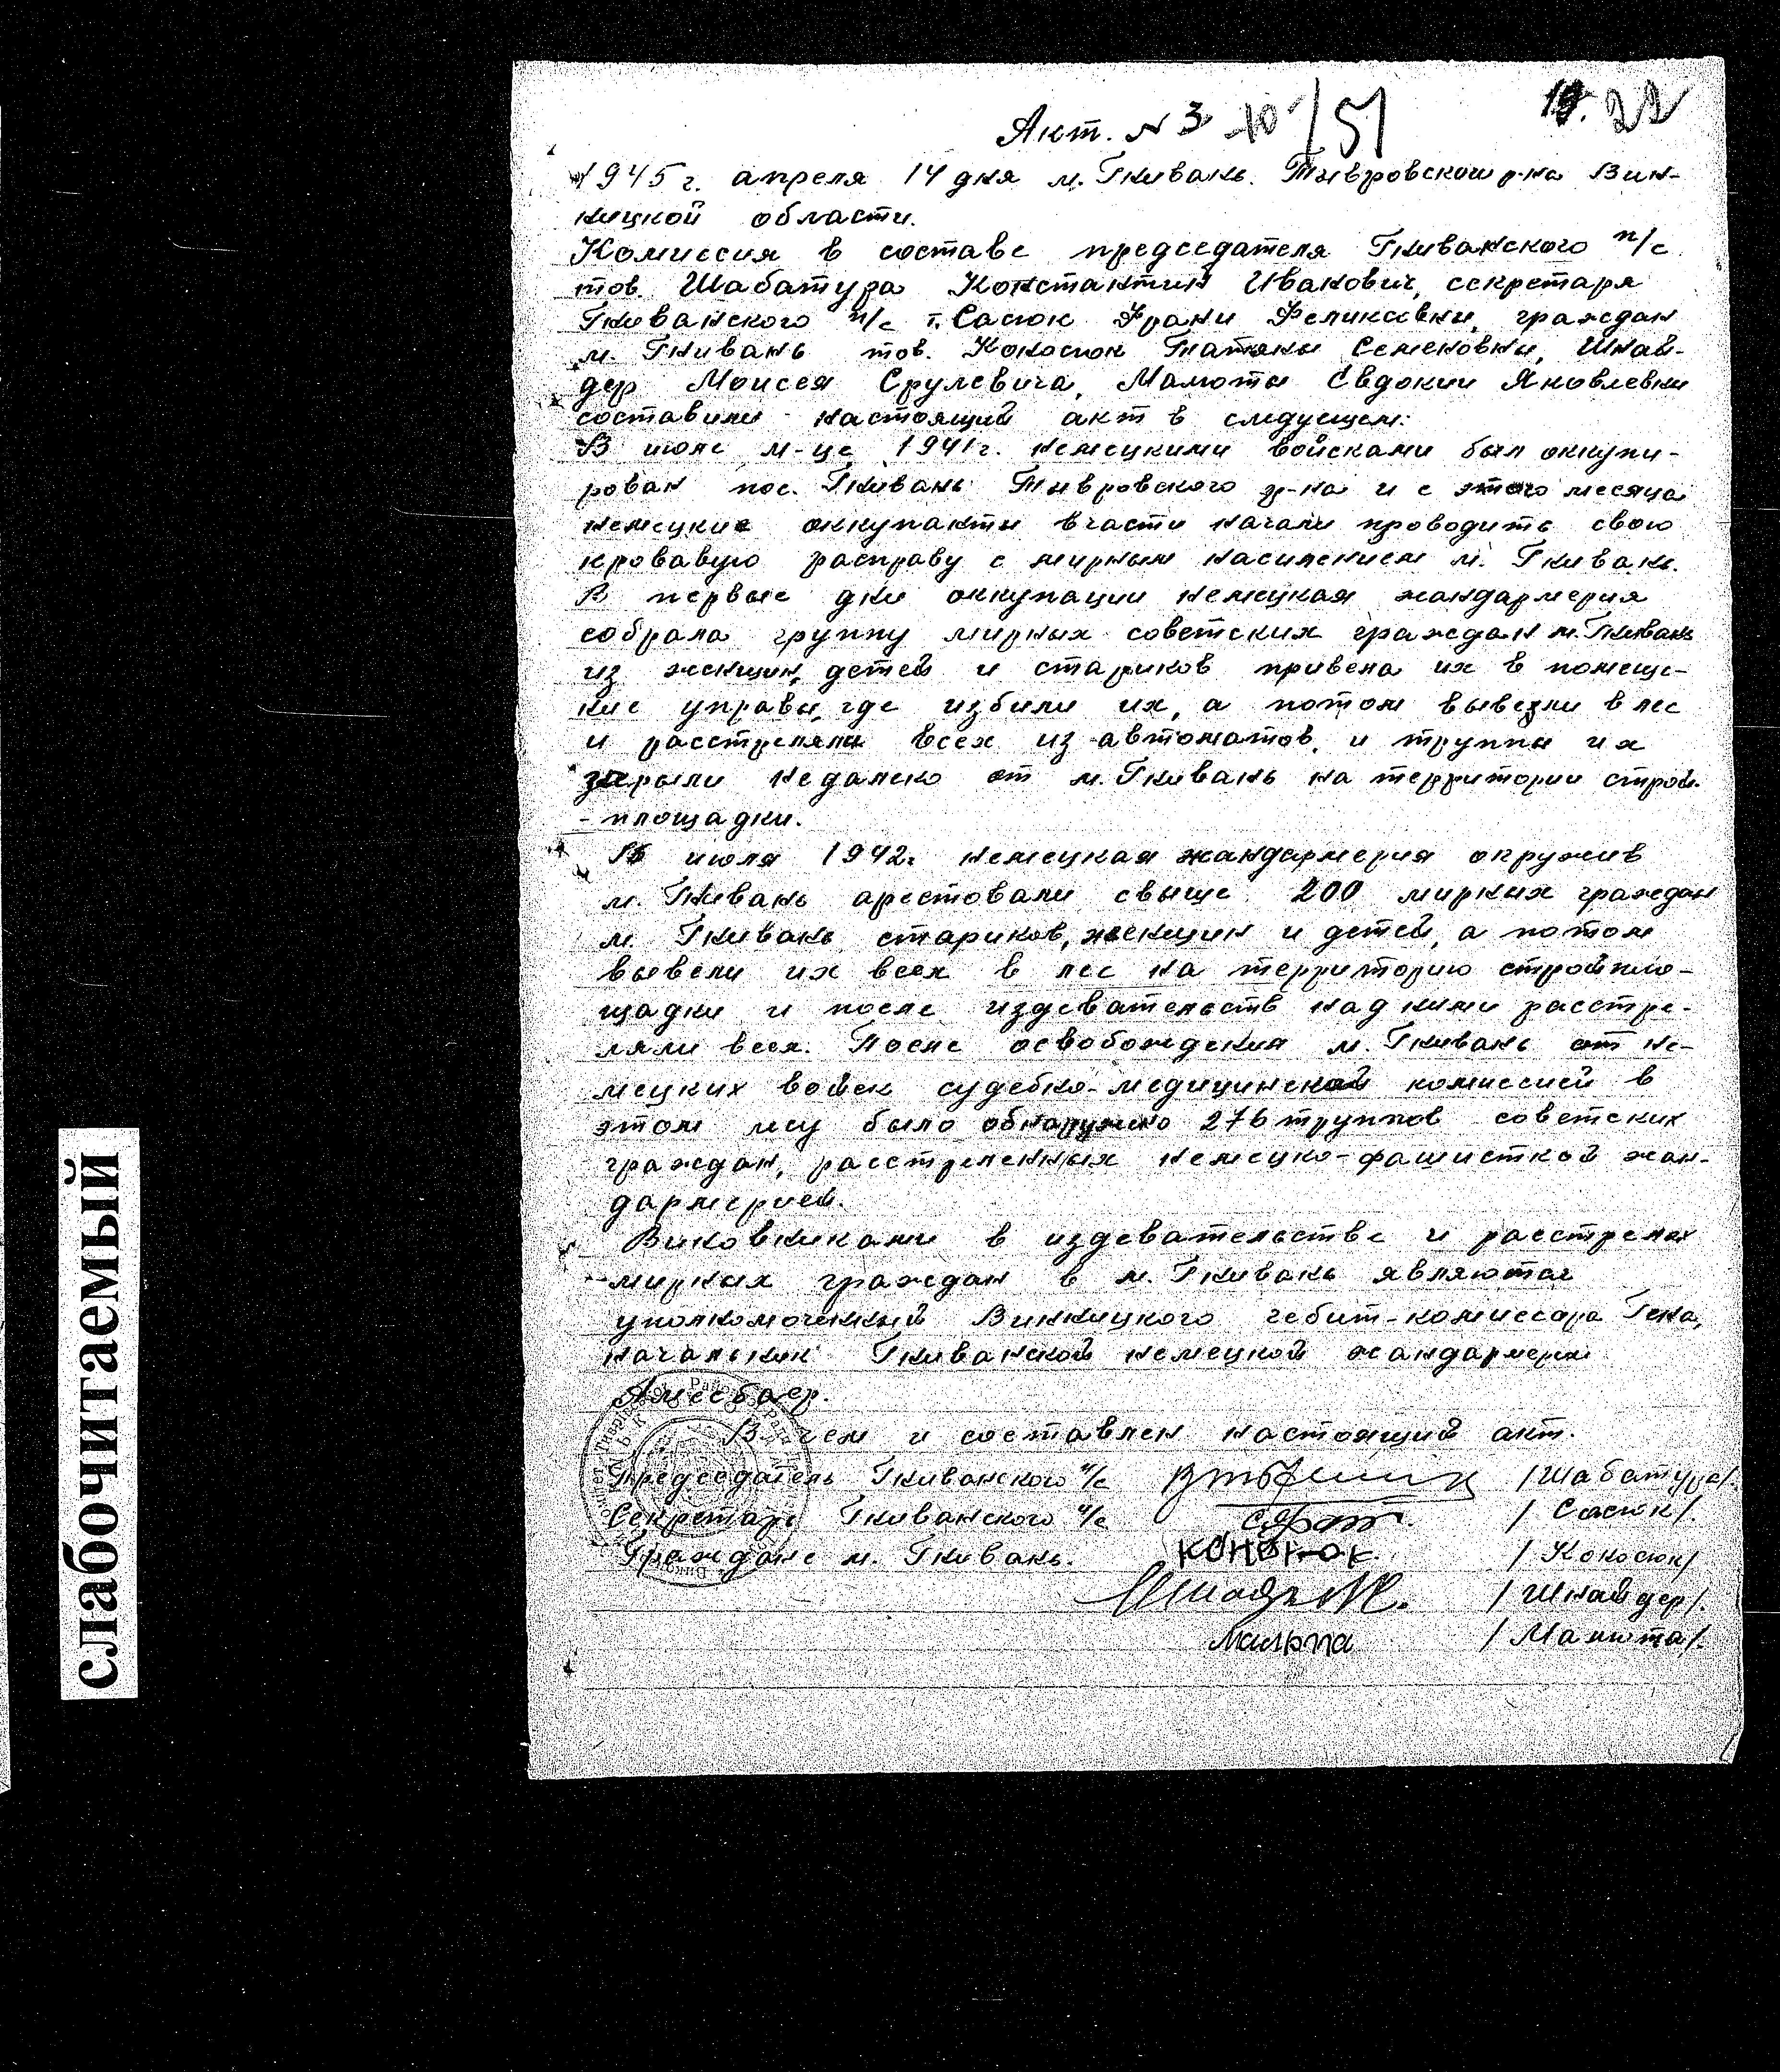 Акт. N 3 10 / 51
19. 22
1945 г. апреля 14 дня м. Гнивань. Тывровского р-на Вин-
ницкой области.
Комиссия в составе председателя Гниванского п/с
тов. Шабатура Константин Иванович, секретаря
Гниванского п/с т. Сасюк Франи Феликсовны, граждан
м. Гнивань тов. Кокосюк Татьяны Семеновны, Шнай-
дер Моисея Срулевича, Малюты Евдокии Яковлевны
составили настоящий акт в следующем:
В июле м-це 1941 г. немецкими войсками был оккупи-
рован пос. Гнивань Тывровского р-на и с этого месяца
немецкие оккупанты власти начали проводить свою
кровавую расправу с мирным населением м. Гнивань.
В первые дни оккупации немецкая жандармерия
собрала группу мирных советских граждан м. Гнивань
из женщин, детей и стариков привела их в помеще-
ние управы, где избили их, а потом вывезли в лес
и расстреляли всех из автоматов, и труппы их
зарыли недалеко от м. Гнивань на территории строй.
- площадки.
июля 1942г немецкая жандармерия окружив
м. Гнивань арестовали свыше 200 мирных граждан
м. Гнивань стариков, женщин и детей, а потом
вывели их всех в лес на территорию стройпло-
щадки и после издевательств над ними расстре-
ляли всех. После освобождения м. Гнивань от не-
мецких войск судебно-медицинской комиссией в
этом лесу было обнаружено 276 труппов советских
граждан, расстреленных немецко-фашисткой жан-
дармерией.
Виновниками в издевательстве и расстрелах
мирных граждан в м. Гнивань являются
уполномоченный Винницкого гебит-комиссара Гена,
начальник Гниванской немецкой жандармерии
В чем и составлен настоящий акт.
Председатель Гниванского п/с /Шабатура/.
Секретарь Гниванского п/с /Сасюк/.
Граждане м. Гнивань. /Кокосюк/
/Шнайдер/.
Малюта /Малюта/.
слабочитаемый